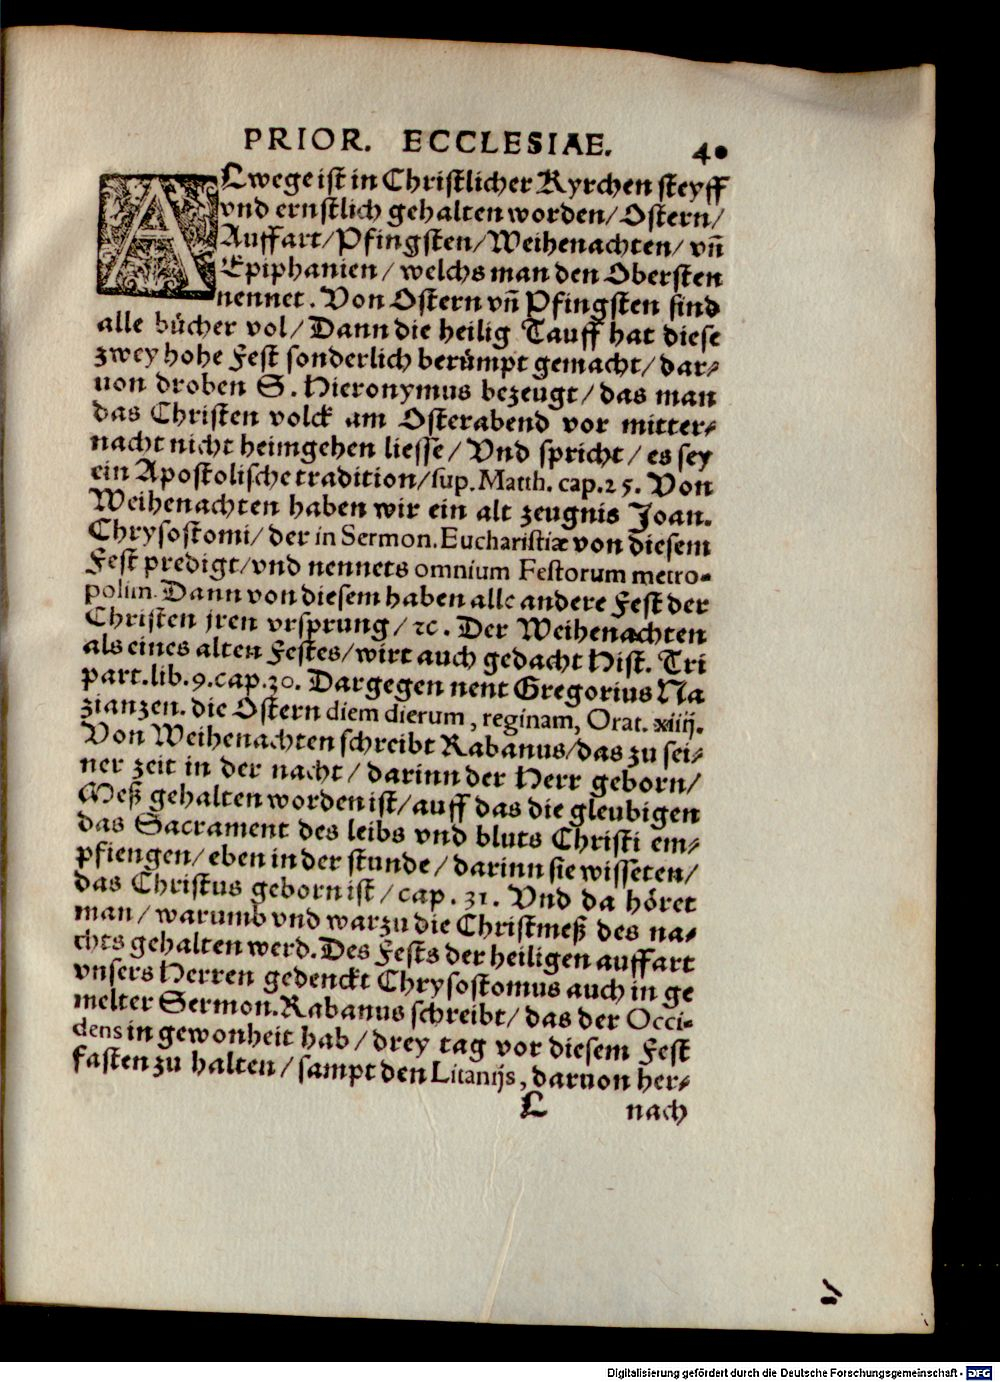 PRIOR. ECCLESIAE. 40
ALwege ist in Christlicher Kyrchen steyff
vnd ernstlich gehalten worden/ Ostern/
Auffart/ Pfingsten/ Weihenachten/ vñ
Epiphanien/ welchs man den Obersten
nennet. Von Ostern vñ Pfingsten sind
alle bücher vol/ Dann die heilig Tauff hat diese
zwey hohe Fest sonderlich berümpt gemacht/ dar-
uon droben S. Hieronymus bezeugt/ das man
das Christen volck am Osterabend vor mitter-
nacht nicht heimgehen liesse/ Vnd spricht/ es sey
ein Apostolische tradition/ sup. Matth. cap. 25. Von
Weihenachten haben wir ein alt zeugnis Joan.
Chrysostomi/ der in Sermon. Eucharistiæ von diesem
Fest predigt/ vnd nennets omnium Festorum metro-
polim. Dann von diesem haben alle andere Fest der
Christen jren vrsprung/ ꝛc. Der Weihenachten
als eines alten Festes/ wirt auch gedacht Hist. Tri
part. lib. 9. cap. 30. Dargegen nent Gregorius Na
zianzen. die Ostern diem dierum, reginam, Orat. xiiij.
Von Weihenachten schreibt Rabanus/ das zu sei-
ner zeit in der nacht/ darinn der Herr geborn/
Meß gehalten worden ist/ auff das die gleubigen
das Sacrament des leibs vnd bluts Christi em-
pfiengen/ eben in der stunde/ darinn sie wisseten/
das Christus geborn ist/ cap. 31. Vnd da höret
man/ warumb vnd warzu die Christmeß des na-
chts gehalten werd. Des Fests der heiligen auffart
vnsers Herren gedenckt Chrysostomus auch in ge
melter Sermon. Rabanus schreibt/ das der Occi-
dens in gewonheit hab/ drey tag vor diesem Fest
fasten zu halten/ sampt den Litanijs, daruon her-
L nach
Digitalisierung gefördert durch die Deutsche Forschungsgemeinschaft - DFG